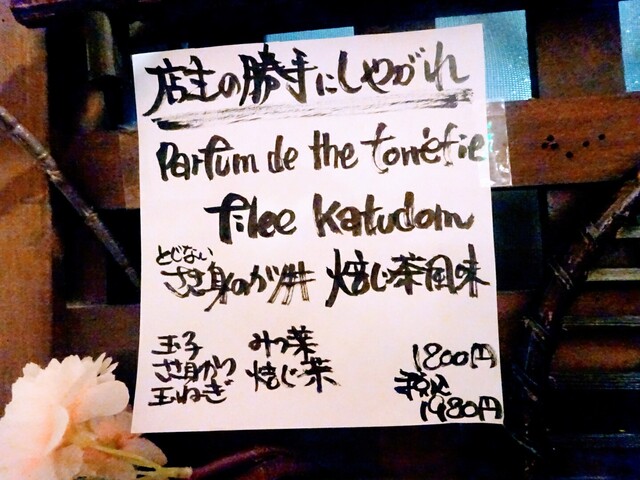 店主の勝手にしやがれ
Parfum de the torréfie
filee Katudom
とじない
ささ身のカツ丼 焙じ茶風味
玉子 みつ葉
ささ身かつ 焙じ茶
玉ねぎ
1800円
税込
1980円